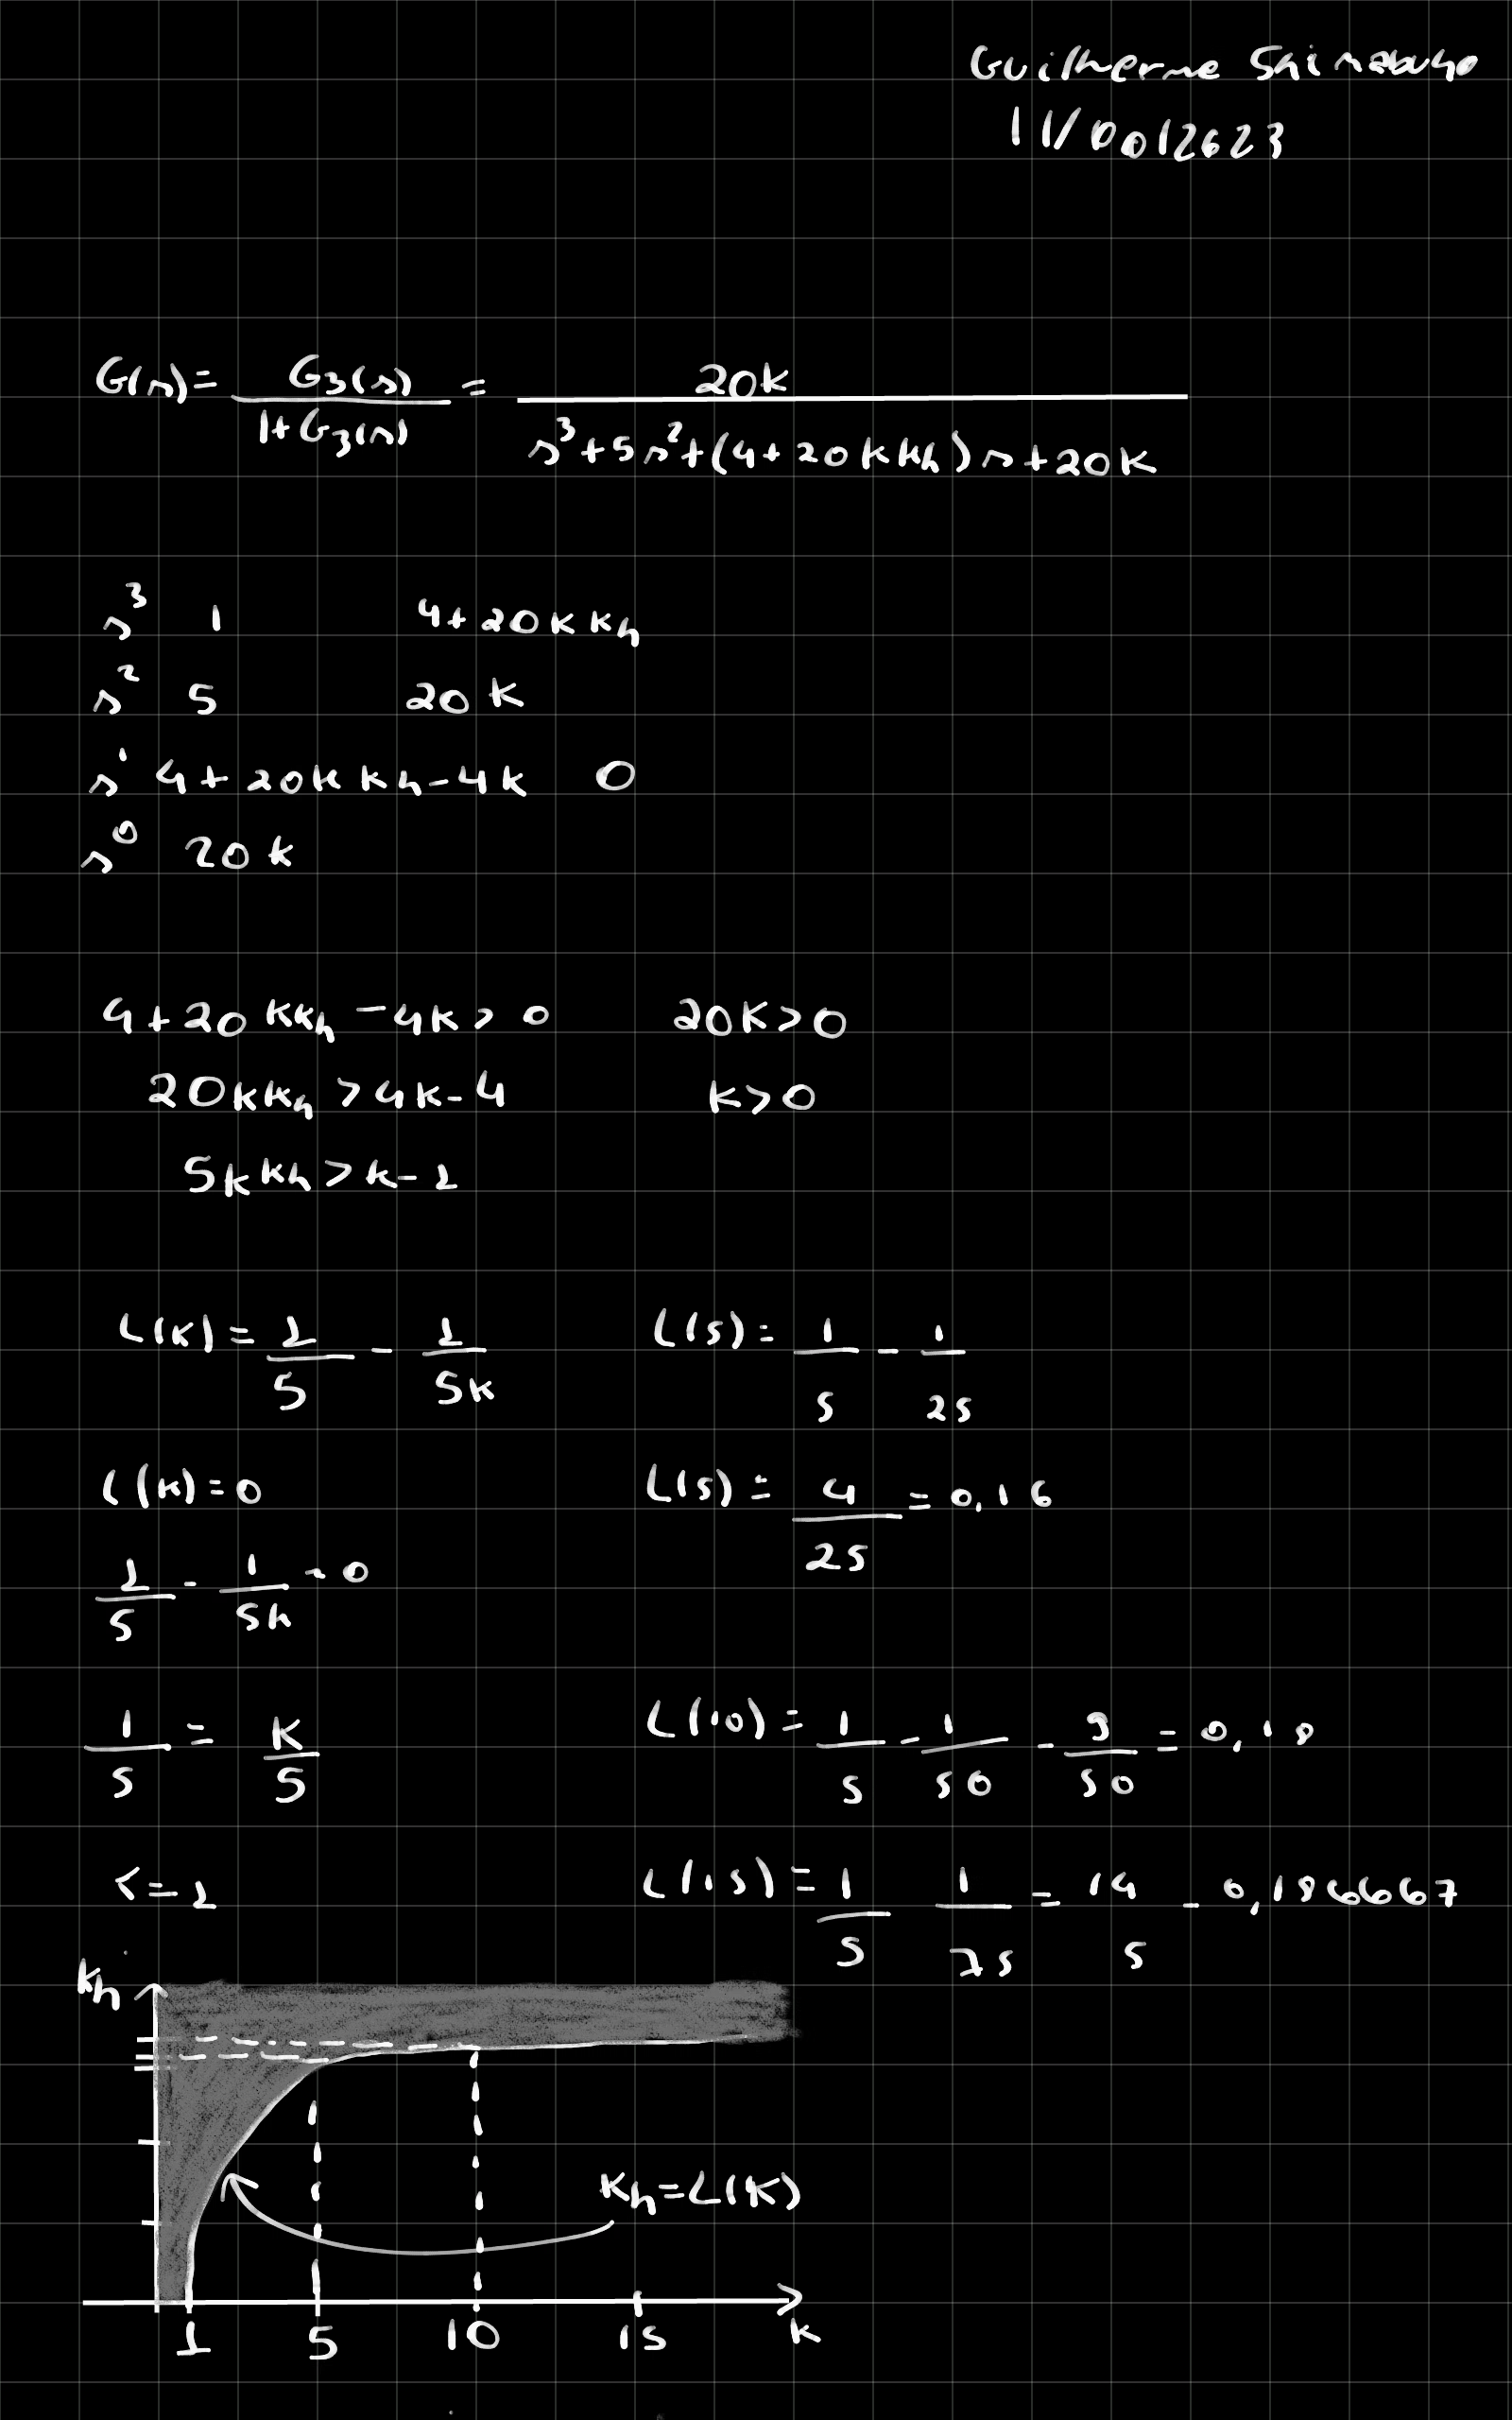 Guilherme Shimabuko
11/0012623
G(s)= G3(s)/1+G3(s) = 20k/s³+5s²+(4+20kkh)s+20k
s³ 1 4+20kkh
s² 5 20k
s¹ 4+20kkh-4k 0
s⁰ 20k
4+20kkh-4k>0 20k>0
20kkh>4k-4 k>0
5kkh>k-1
L(k)= 1/5 - 1/5k L(5)= 1/5 - 1/25
L(k)=0 L(5)= 4/25 =0,16
1/5 - 1/5k = 0
1/5 = k/5 L(10)= 1/5 - 1/50 - 9/50 = 0,18
k=1 L(15)= 1/5 1/75 = 14/5 - 0,186667
kh
kh=L(k)
1 5 10 15 k